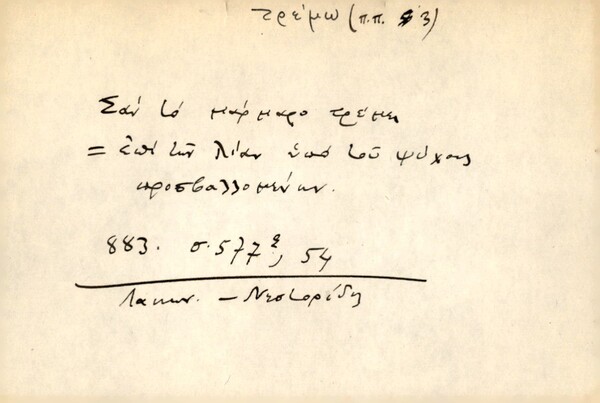 τρέμω (π.π. 3)
Σαν το μάρμαρο τρέμει
= ἐπὶ τῶν λίαν ὑπὸ τοῦ ψύχους
προσβαλλομένων.
883. σ. 577², 54
Λακων. – Νεστορίδης